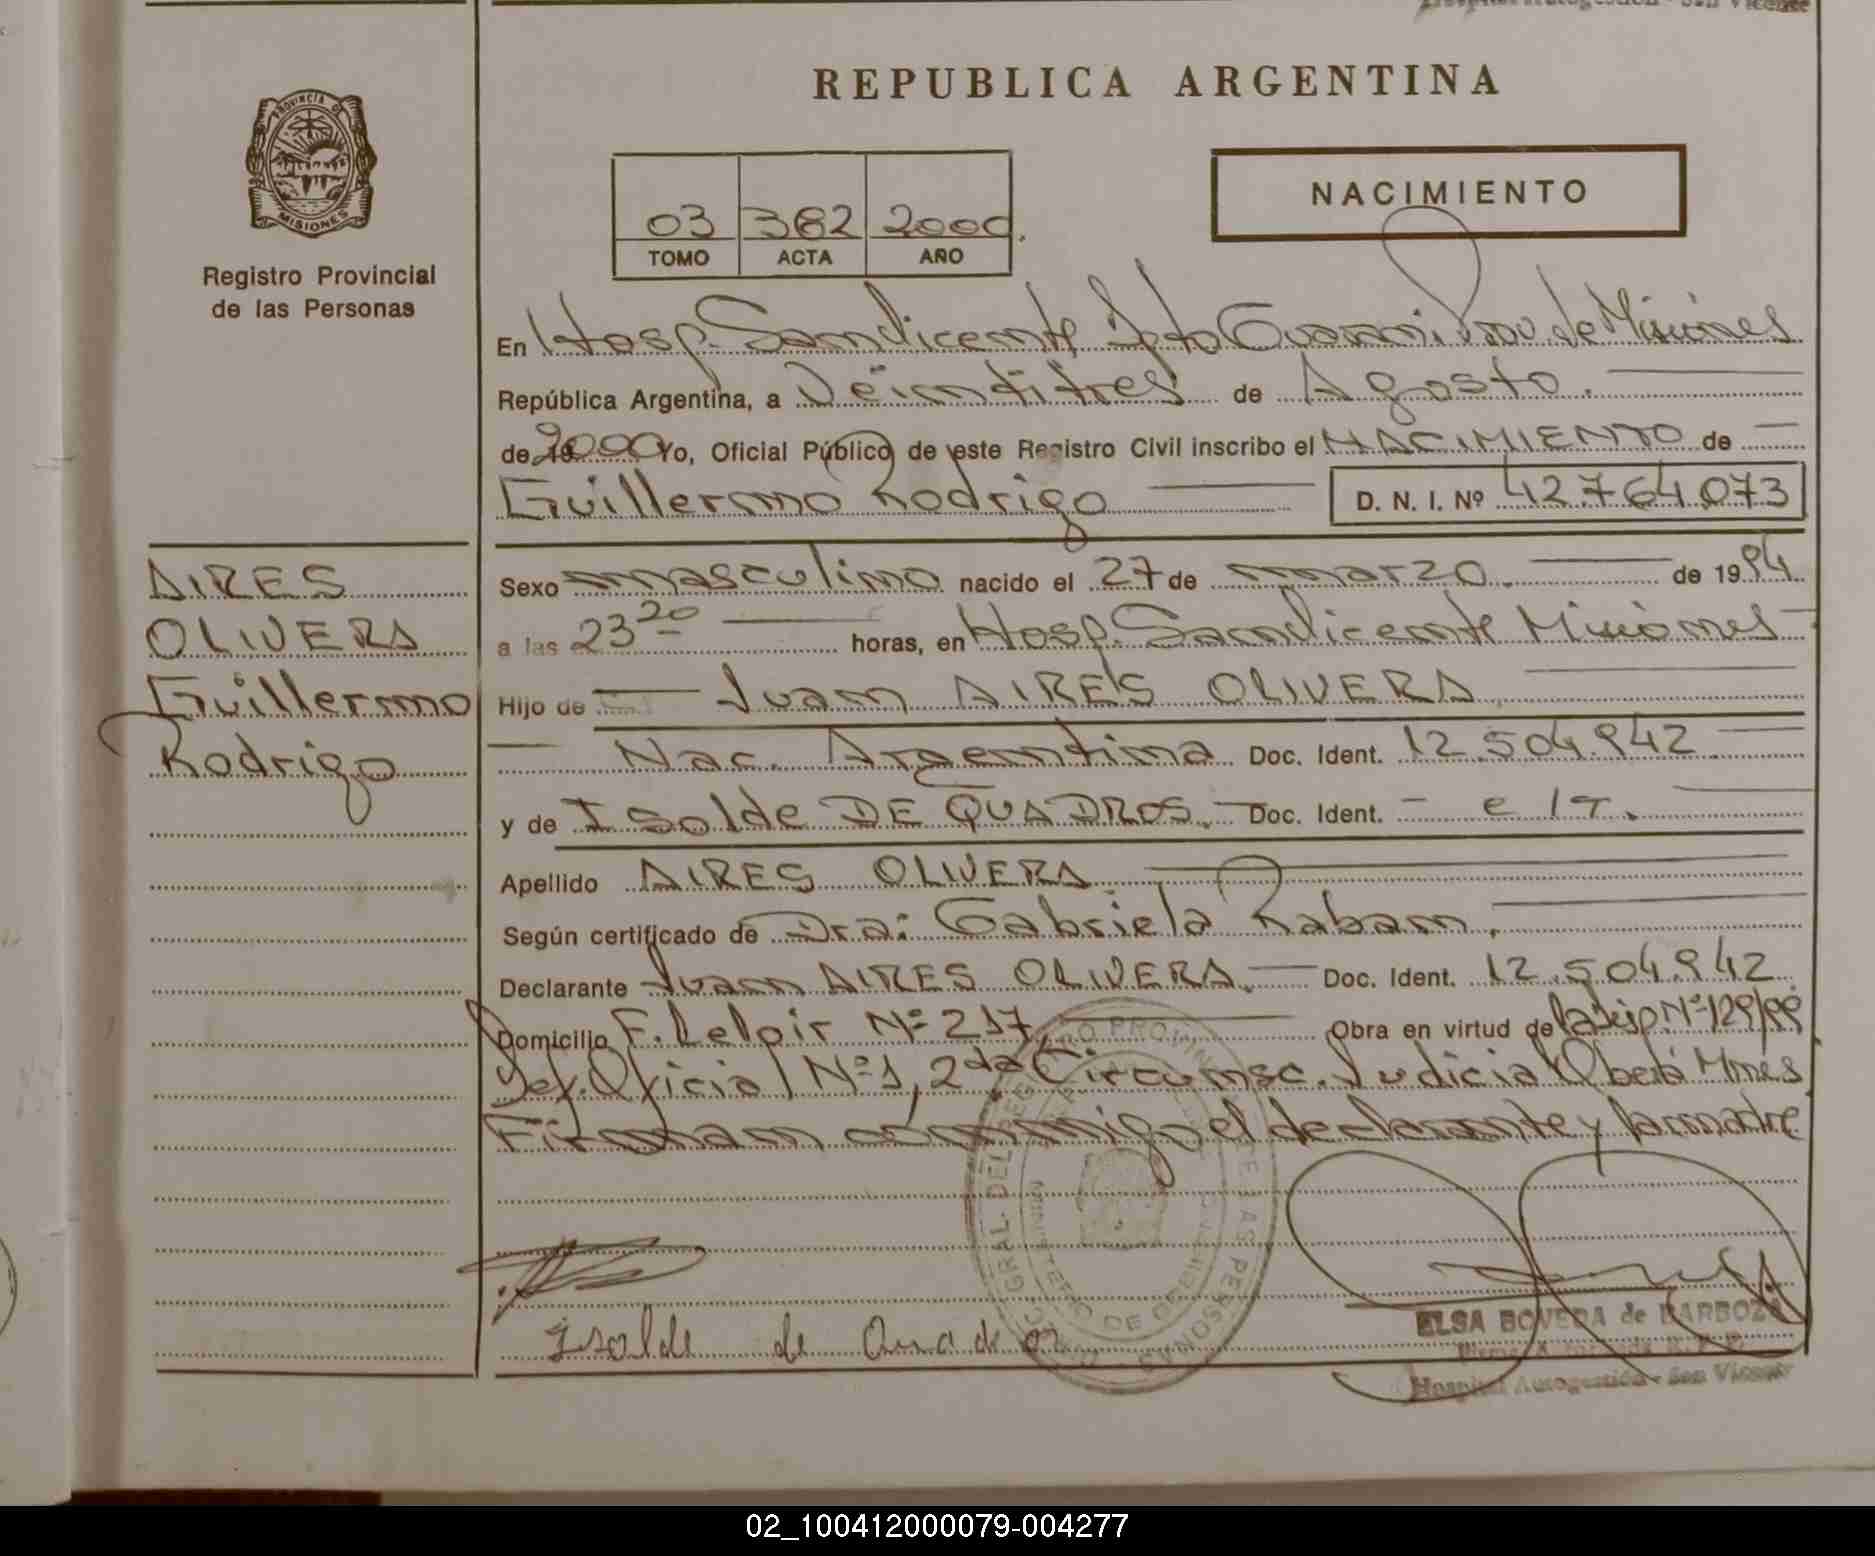 REPUBLICA ARGENTINA
PROVINCIA DE
MISIONES
Registro Provincial
de las Personas
NACIMIENTO
03 382 2000
TOMO ACTA AÑO
En Hosp. San Vicente Dpto Guarani. Prov. de Misiones
República Argentina, a Veintitres de Agosto.
de 2000 Yo, Oficial Público de este Registro Civil inscribo el NACIMIENTO de
Guillermo Rodrigo D. N. I. Nº 42.764.073
AIRES
OLIVERA
Guillermo
Rodrigo
Sexo masculino nacido el 27 de marzo. de 1994
a las 23 20 horas, en Hosp. San Vicente Misiones
Hijo de Juan AIRES OLIVERA
Nac. Argentina Doc. Ident. 12.504.942
y de Isolde DE QUADROS. Doc. Ident. - e/T.
Apellido AIRES OLIVERA
Según certificado de Dra: Gabriela Raban.
Declarante Juan AIRES OLIVERA. Doc. Ident. 12.504.942
Domicilio F. Leloir Nº 217, Obra en virtud de la Disp. Nº 129/99
Def. Oficial Nº 1, 2da Circunsc. Judicial Oberá Mnes
Firman conmigo el declarante y la madre
Isolde de Quadros
ELSA BOVERA de BARBOZA
Hospital Autogestión - San Vicente
02_100412000079-004277